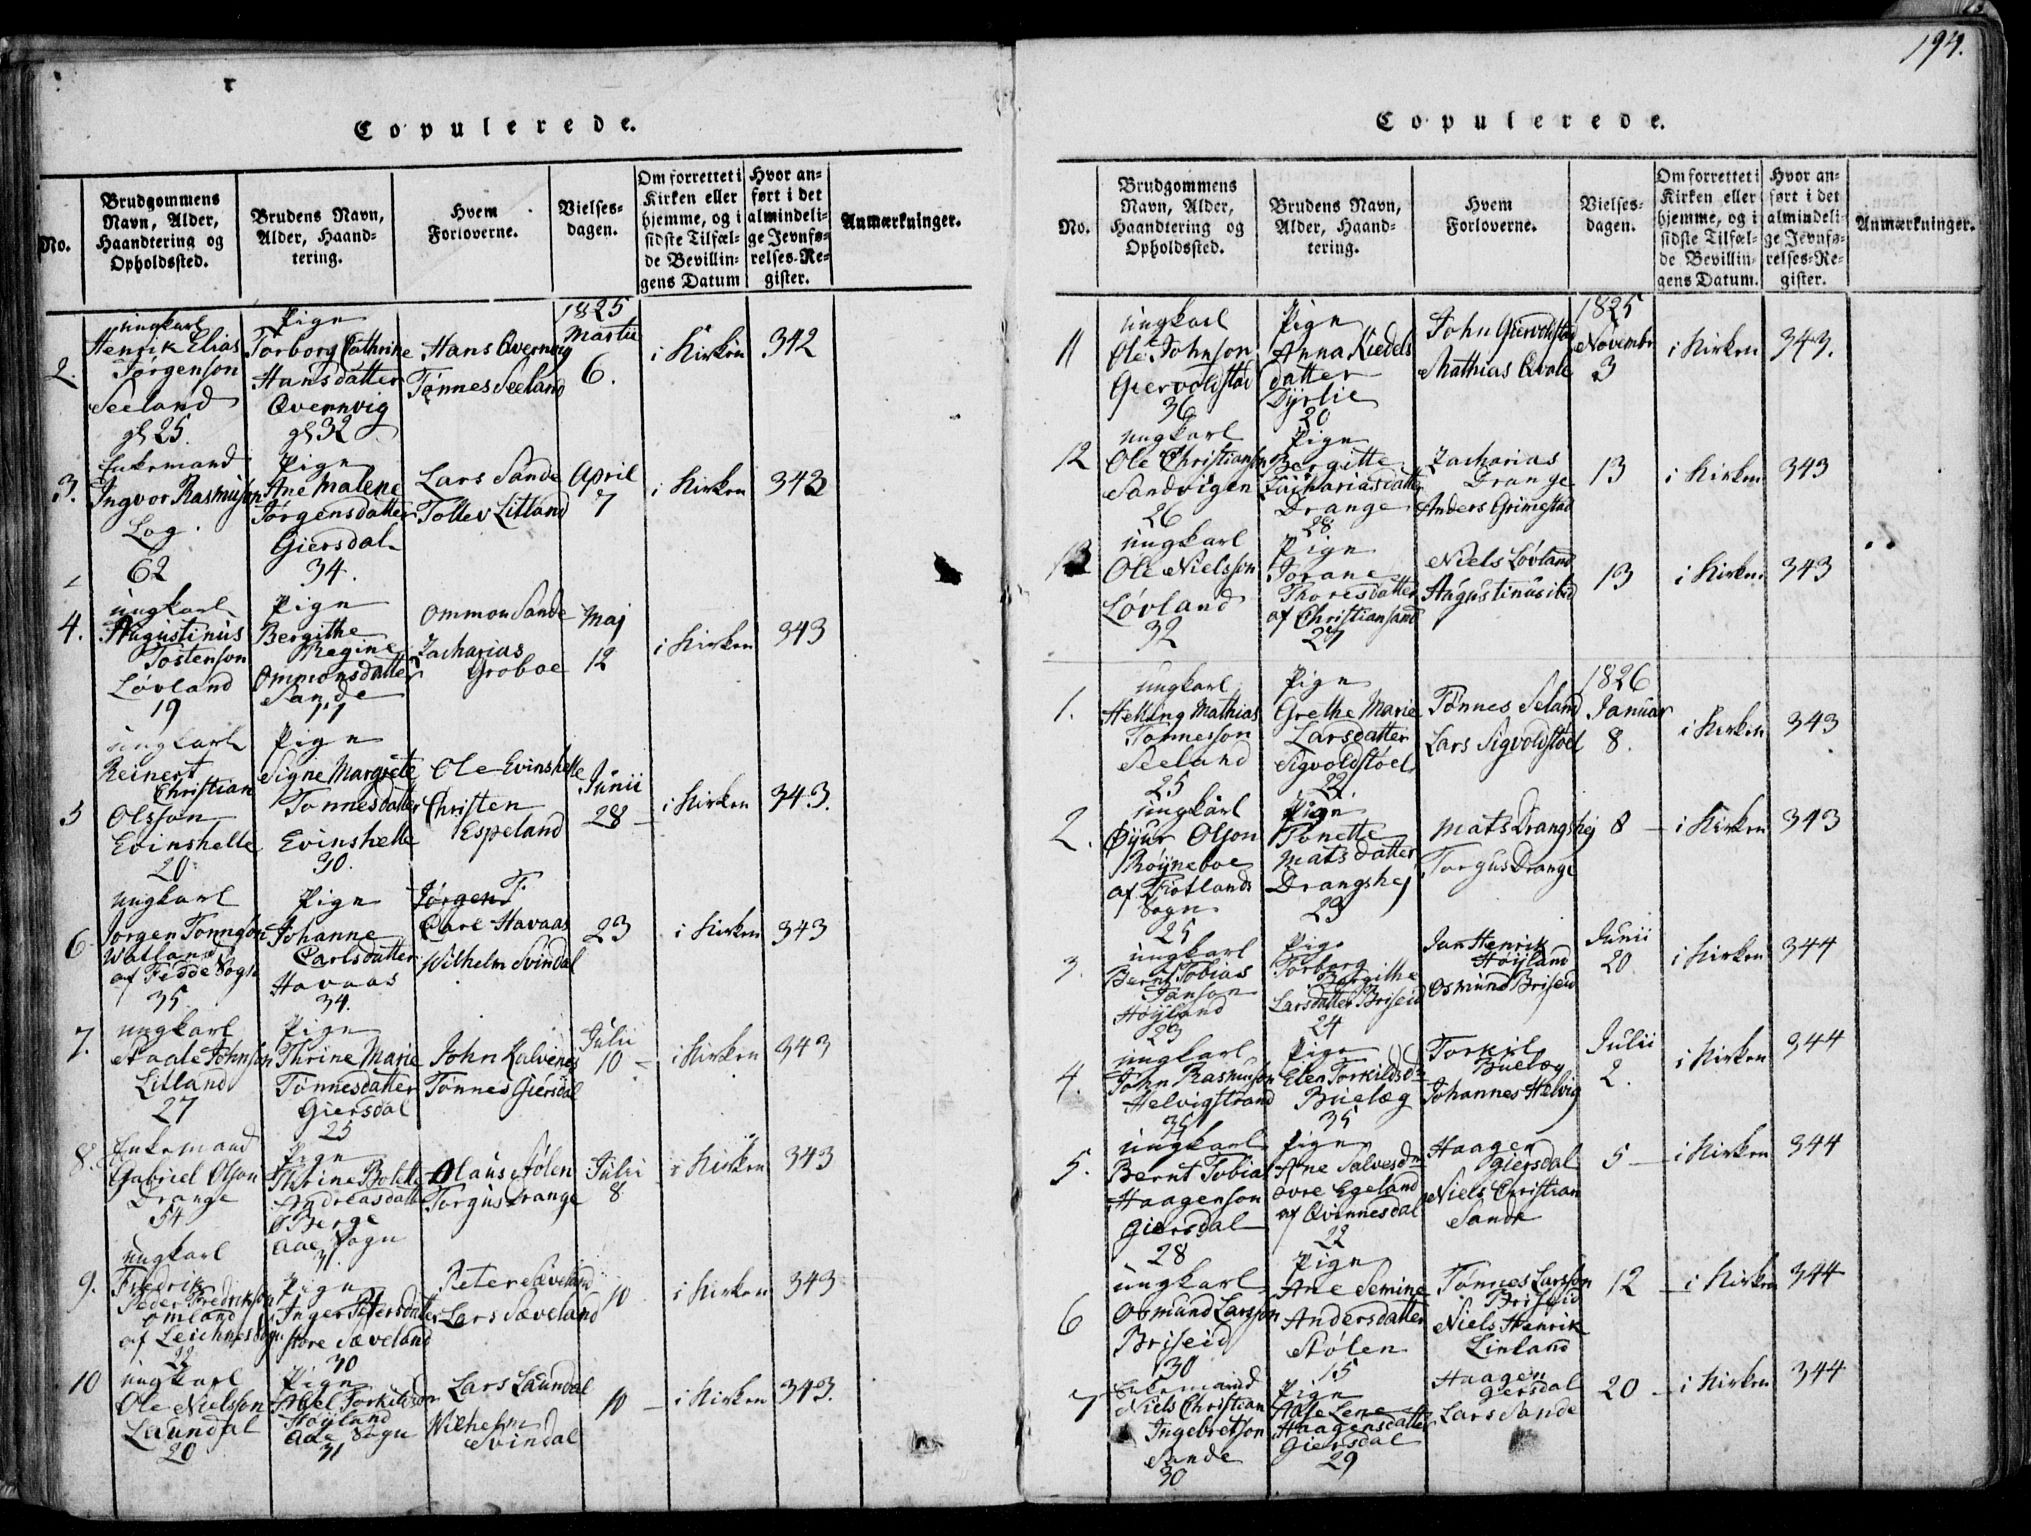 194.
Copulerede.
No.
Brudgommens Navn, Alder, Haandtering og Opholdssted.
Brudens Navn, Alder, Haandtering.
Hvem Forloverne.
Vielsesdagen.
Om forrettet i Kirken eller hjemme, og i sidste Tilfælde Bevillingens Datum
Hvor anført i det almindelige Jevnførelses-Register.
Anmærkninger.
2.
ungkarl
Henrik Elias
Jørgenson
Seeland
gl 25.
Pige
Torborg Cathrine
Hansdatter
Qvernvig
gl 32
Hans Qvernvig
Tønnes Seeland
1825
Martii
6.
i Kirken
342
3.
Enkemand
Ingvor Rasmuson
Log
62
Pige
Ane Malene
Jørgensdatter
Giersdal
34.
Lars Sande
Tollev Litland
April
7
i Kirken
343
4.
ungkarl
Augustinus
Tostenson
Løvland
19
Pige
Bergithe
Regine
Ommonsdatter
Sande
Ommon Sande
Zacharias
Groboe
Maj
12
i Kirken
343
5
ungkarl
Reinert
Christian
Olsson
Evinshelle
20
Pige
Signe Margrete
Tonnesdatter
Evinshelle
30.
Ole Evinshelle
Christen
Espeland
Junii
28
i Kirken
343.
6
ungkarl
Jorgen Tonnson
Watland
af Fedde Sogn
35.
Pige
Johanne
Carlsdatter
Havaas
34.
Jørgen T.
Carl Havaas
Wilhelm Svindal
23
i Kirken
343
7.
ungkarl
Aaale Johnson
Litland
27
Pige
Thrine Marie
Tønnesdatter
Giersdal
25
John Kalvenes
Tønnes Giersdal
Julii
10
i Kirken
343
8.
Enkemand
Gabriel Olson
Drange
54
Pige
Thrine Bolette
Andreasdatt
Berge
Aae Sogn
31.
Olaus Stølen
Torgus Drange
Julii
8
i Kirken
343
9.
ungkarl
Fredrik
Peder Fredrikson
Omland
af Leichnes Sogn
22
Pige
Inger Petersdatter
store Sæveland
30
Peter Sæveland
Lars Sæveland
10
i Kirken
343
10
ungkarl
Ole Nielsson
Laundal
20
Pige
Abel Torkildsdr
Høyland
Aae Sogn
31
Lars Laundal
Wilhelm
Svindal
10
i Kirken
343.
Copulerede.
No.
Brudgommens Navn, Alder, Haandtering og Opholdssted.
Brudens Navn, Alder, Haandtering.
Hvem Forloverne.
Vielsesdagen.
Om forrettet i Kirken eller hjemme, og i sidste Tilfælde Bevillingens Datum.
Hvor anført i det almindelige Jevnførelses-Register.
Anmærkninger.
11
ungkarl
Ole Johnson
Giervoldstad
36
Pige
Anna Kiedels
datter
Dyrlie
20
John Giervoldstad
Mathias Qvale
1825
Novembr
3
i Kirken
343.
12
ungkarl
Ole Christianson
Sandvigen
26
Pige
Bergitte
Zachariasdatter
Drange
28
Zacharias
Drange
Anders Grimestad
13
i Kirken
343
13
ungkarl
Ole Nielsson
Løvland
32
Pige
Jorane
Thoresdatter
af Christiansand
27
Niels Løvland
Augustinus ibid
13
i Kirken
343
1.
ungkarl
Helling Mathias
Tonnesson
Seeland
25
Pige
Grethe Marie
Larsdatter
Sigvoldstøel
22.
Tønnes Seland
Lars Sigvoldstøel
1826
Januar
8.
i Kirken
343
2.
ungkarl
Øjur Olson
Røyneboe
af Fiotlands
Sogn
25
Pige
Tonette
Matsdatter
Drangshej
23
Mats Drangshej
Torgus Drange
8
i Kirken
343
3.
ungkarl
Bernt Tobias
Janson
Høyland
23
Pige
Torborg
Bergithe
Larsdatter Briseid
24
Jan Henrik
Høyland
Osmund Briseid
Junii
20
i Kirken
344
4.
ungkarl
John Rasmuson
Helvigstrand
35
Pige
Elen Torkildsdr
Buelæg
35
Torkil
Buelæg
Johannes Helvig
Julii
2.
i Kirken
344
5.
ungkarl
Bernt Tobias
Haagenson
Giersdal
28
Pige
Ane Salvesdr
øvre Egeland
af Qvinnesdal
22
Haagen
Giersdal
Niels Christian
Sande
5
i Kirken
344
6
ungkarl
Osmund Larsson
Briseid
30
Pige
Ane Semine
Andersdatter
Stølen
15
Tønnes Larsson
Briseid
Niels Henrik
Linland
12
i Kirken
344
7
Enkemand
Niels Christian
Ingebretson
Sande
30
Pige
Aase Lene
Haagensdatter
Giersdal
29
Haagen
Gersdal
Lars Sande
20
i Kirken
344